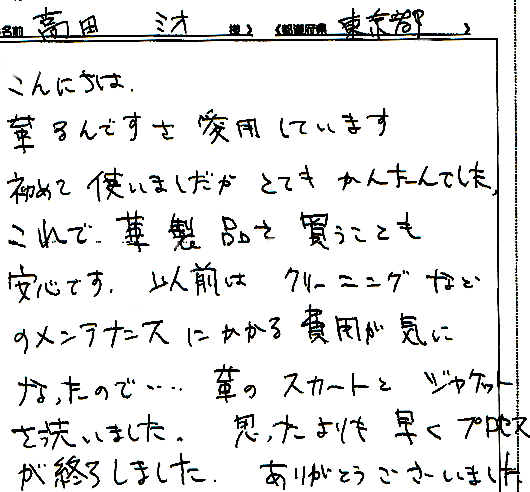 名前 高田 ミオ 様》 《都道府県 東京都 》
こんにちは.
革るんですを愛用しています
初めて使いましたが とても かんたんでした,
これで 革製品を買うことも
安心です. 以前は クリーニング など
のメンテナンスにかかる費用が気に
なったので‥‥ 革の スカートと ジャケット
を洗いました。 思ったよりも 早く プロセス
が終了しました. ありがとうございました